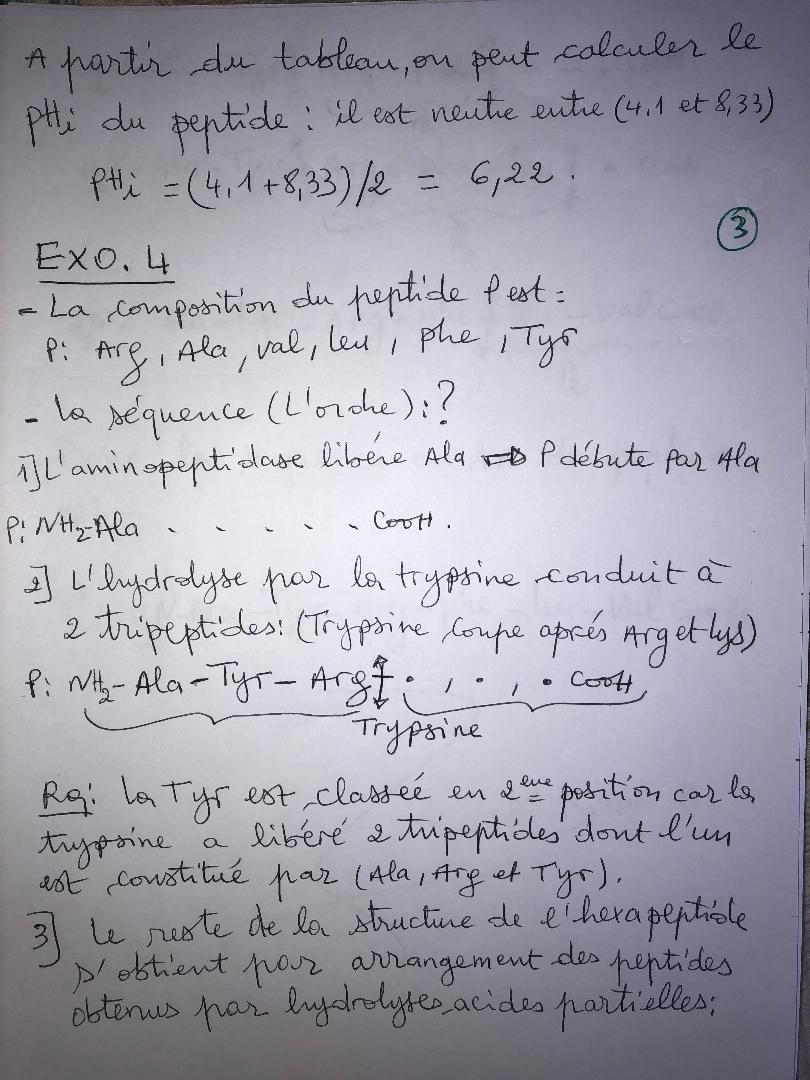 A partir du tableau, on peut calculer le
pHi du peptide : il est neutre entre (4,1 et 8,33)
pHi = (4,1+8,33)/2 = 6,22.
3
EXO. 4
- La composition du peptide P est =
P: Arg, Ala, val, leu, phe, Tyr
- la séquence (L'ordre): ?
1] L'aminopeptidase libére Ala ⇒ P débute par Ala
P: NH2-Ala . . . . . COOH.
2] L'hydrolyse par la trypsine conduit à
2 tripeptides: (Trypsine coupe aprés Arg et lys)
P: NH2-Ala-Tyr-Arg ↕ . , . , . COOH
Trypsine
Rq: la Tyr est classée en 2eme position car la
trypsine a libéré 2 tripeptides dont l'un
est constitué par (Ala, Arg et Tyr).
3] Le reste de la structure de l'hexapeptide
s'obtient par arrangement des peptides
obtenus par hydrolyses acides partielles: